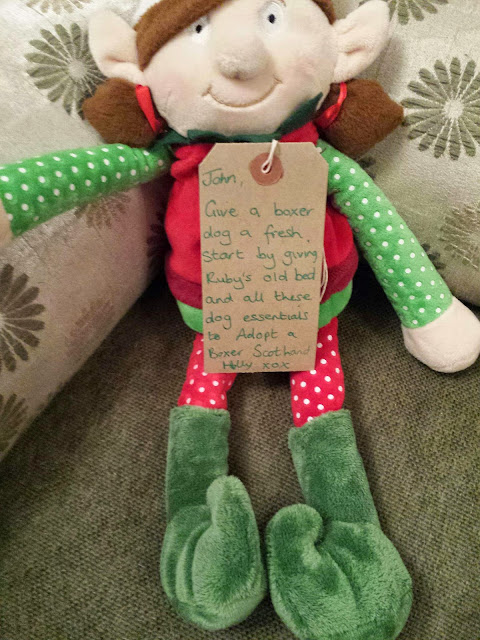 John,
Give a boxer
dog a fresh,
start by giving
Ruby's old bed
and all these
dog essentials
to Adopt a
Boxer Scotland
Holly xox